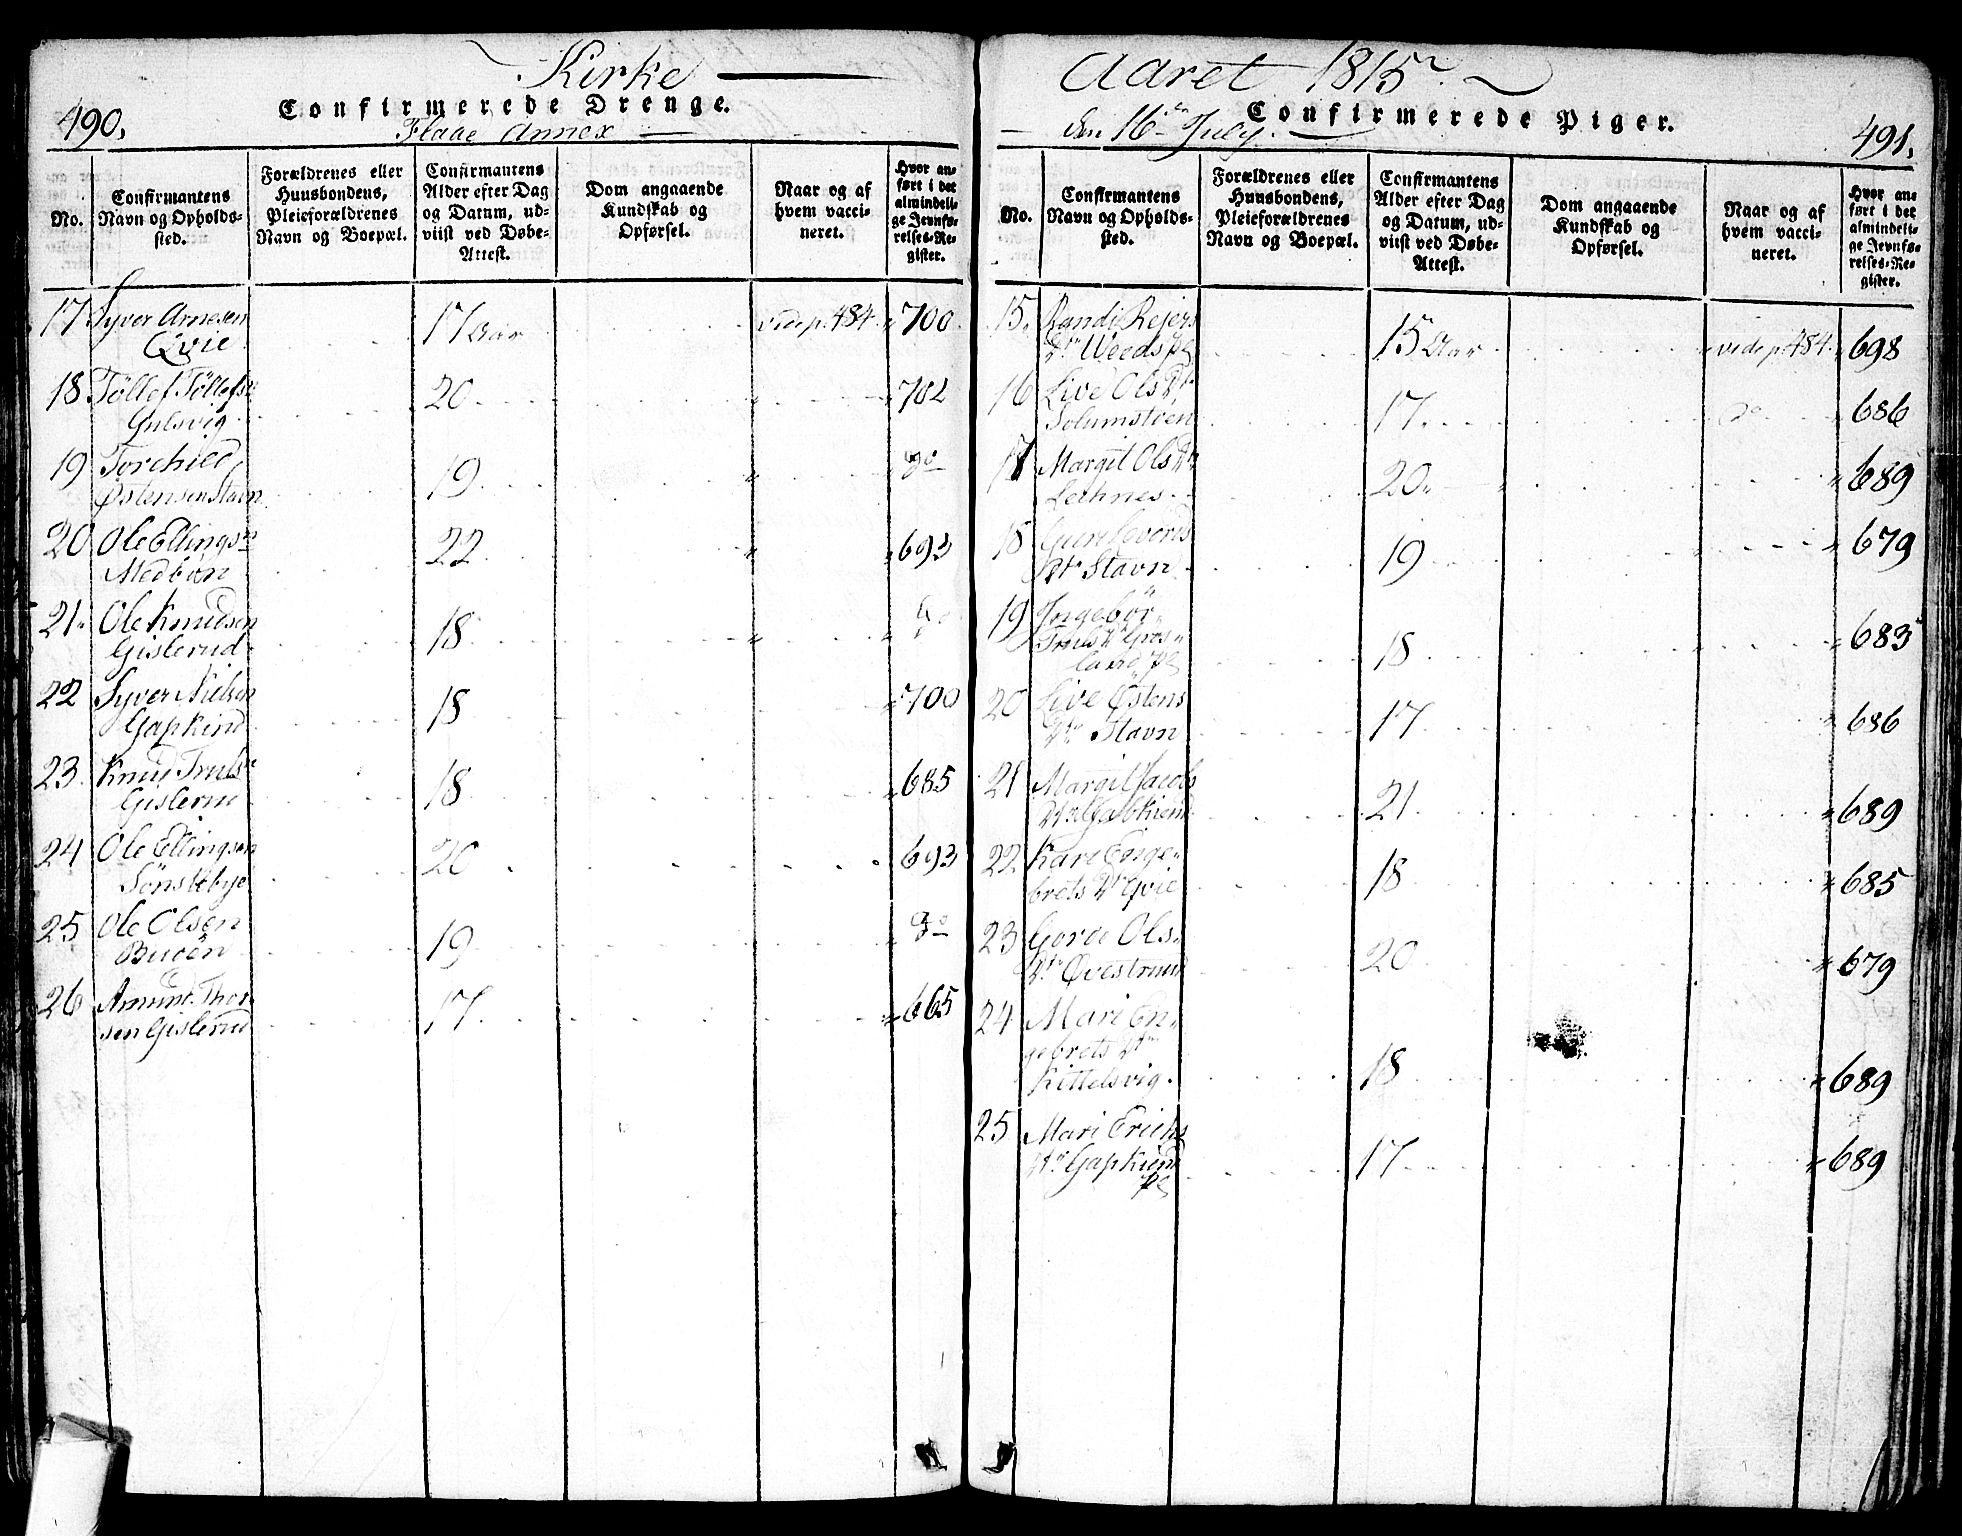 Kirke
490.
Confirmerede Drenge.
Flaae Annex
No.
Confirmantens
Navn og Opholds-
sted.
Forældrenes eller
Huusbondens,
Pleieforældrenes
Navn og Boepæl.
Confirmantens
Alder efter Dag
og Datum, ud-
viist ved Døbe-
Attest.
Dom angaaende
Kundskab og
Opførsel.
Naar og af
hvem vacci-
neret.
Hvor an-
ført i det
almindeli-
ge Jevnfø-
relses-Re-
gister.
17 Syver Arnesen 17 Aar vide p. 484. " 700.
Qvie
18 Töllef Töllefs. 20 " " 702
Gulsvig
19 Torchild " do
Østensen Stavn 19
20 Ole Ellings. 22 " " 693
Medbøn
21. Ole Knudsen 18 " " do
Gislerud
22 Syver Nielsen 18 " 700
Gapkind
23 Knud Truls. 18 " 685
Gislerud
24 Ole Ellingsen 20 " 693
Sönstebye
25 Ole Olsen 19 " do
Buøen
26 Amund Thor 17 " 665
sen Gislerud
Aaret 1815
den 16de July.
Confirmerede Piger.
491.
No.
Confirmantens
Navn og Opholds-
sted.
Forældrenes eller
Huusbondens,
Pleieforældrenes
Navn og Boepæl.
Confirmantens
Alder efter Dag
og Datum, ud-
viist ved Døbe-
Attest.
Dom angaaende
Kundskab og
Opførsel.
Naar og af
hvem vacci-
neret.
Hvor an-
ført i det
almindeli-
ge Jevnfø-
relses-Re-
gister.
15. Randi Rejers
Dr. Weeds pl 15 Aar " vide p. 484. " 698
16 Live Ols Dr.
Solumstoen 17 do " 686
17 Margit Ols Dr.
Lechnes 20 " " 689
18 Guri
Dr. Stavn 19 " " 679
19 Ingebör
Truls Dr. Gros
pl 18 " 683
20 Live Østens
Dr. Stavn 17 " 686
21 Margit Jacobs
Dr. Gabkiend 21 " 689
22 Kari Enge"
brets Dr. Qvie 18 " 685
23 Goroe Ols"
Dr. Øvestrud 20 " 679
24 Mari En"
gebrets Dr.
Kittelsvig 18 " 689
25 Mari Erichs
Dr. Gapkiend 17 " 689
pl